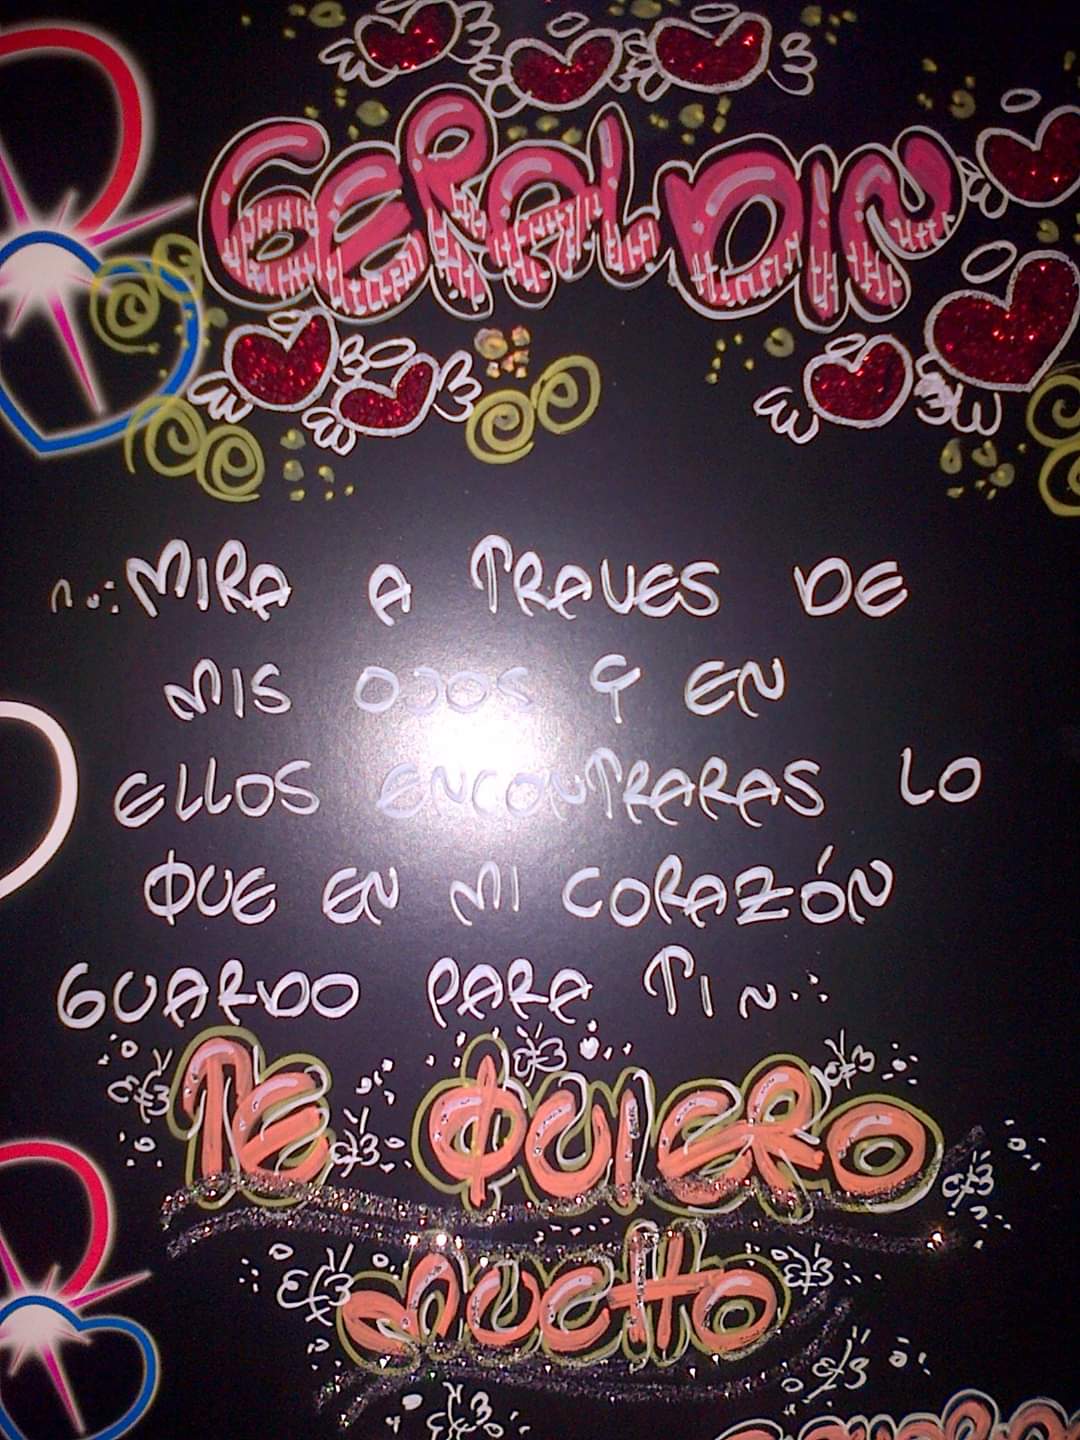 GERALDIN
MIRA A TRAVES DE
MIS OJOS Y EN
ELLOS ENCONTRARAS LO
QUE EN MI CORAZÓN
GUARDO PARA TI
TE QUIERO
MUCHO